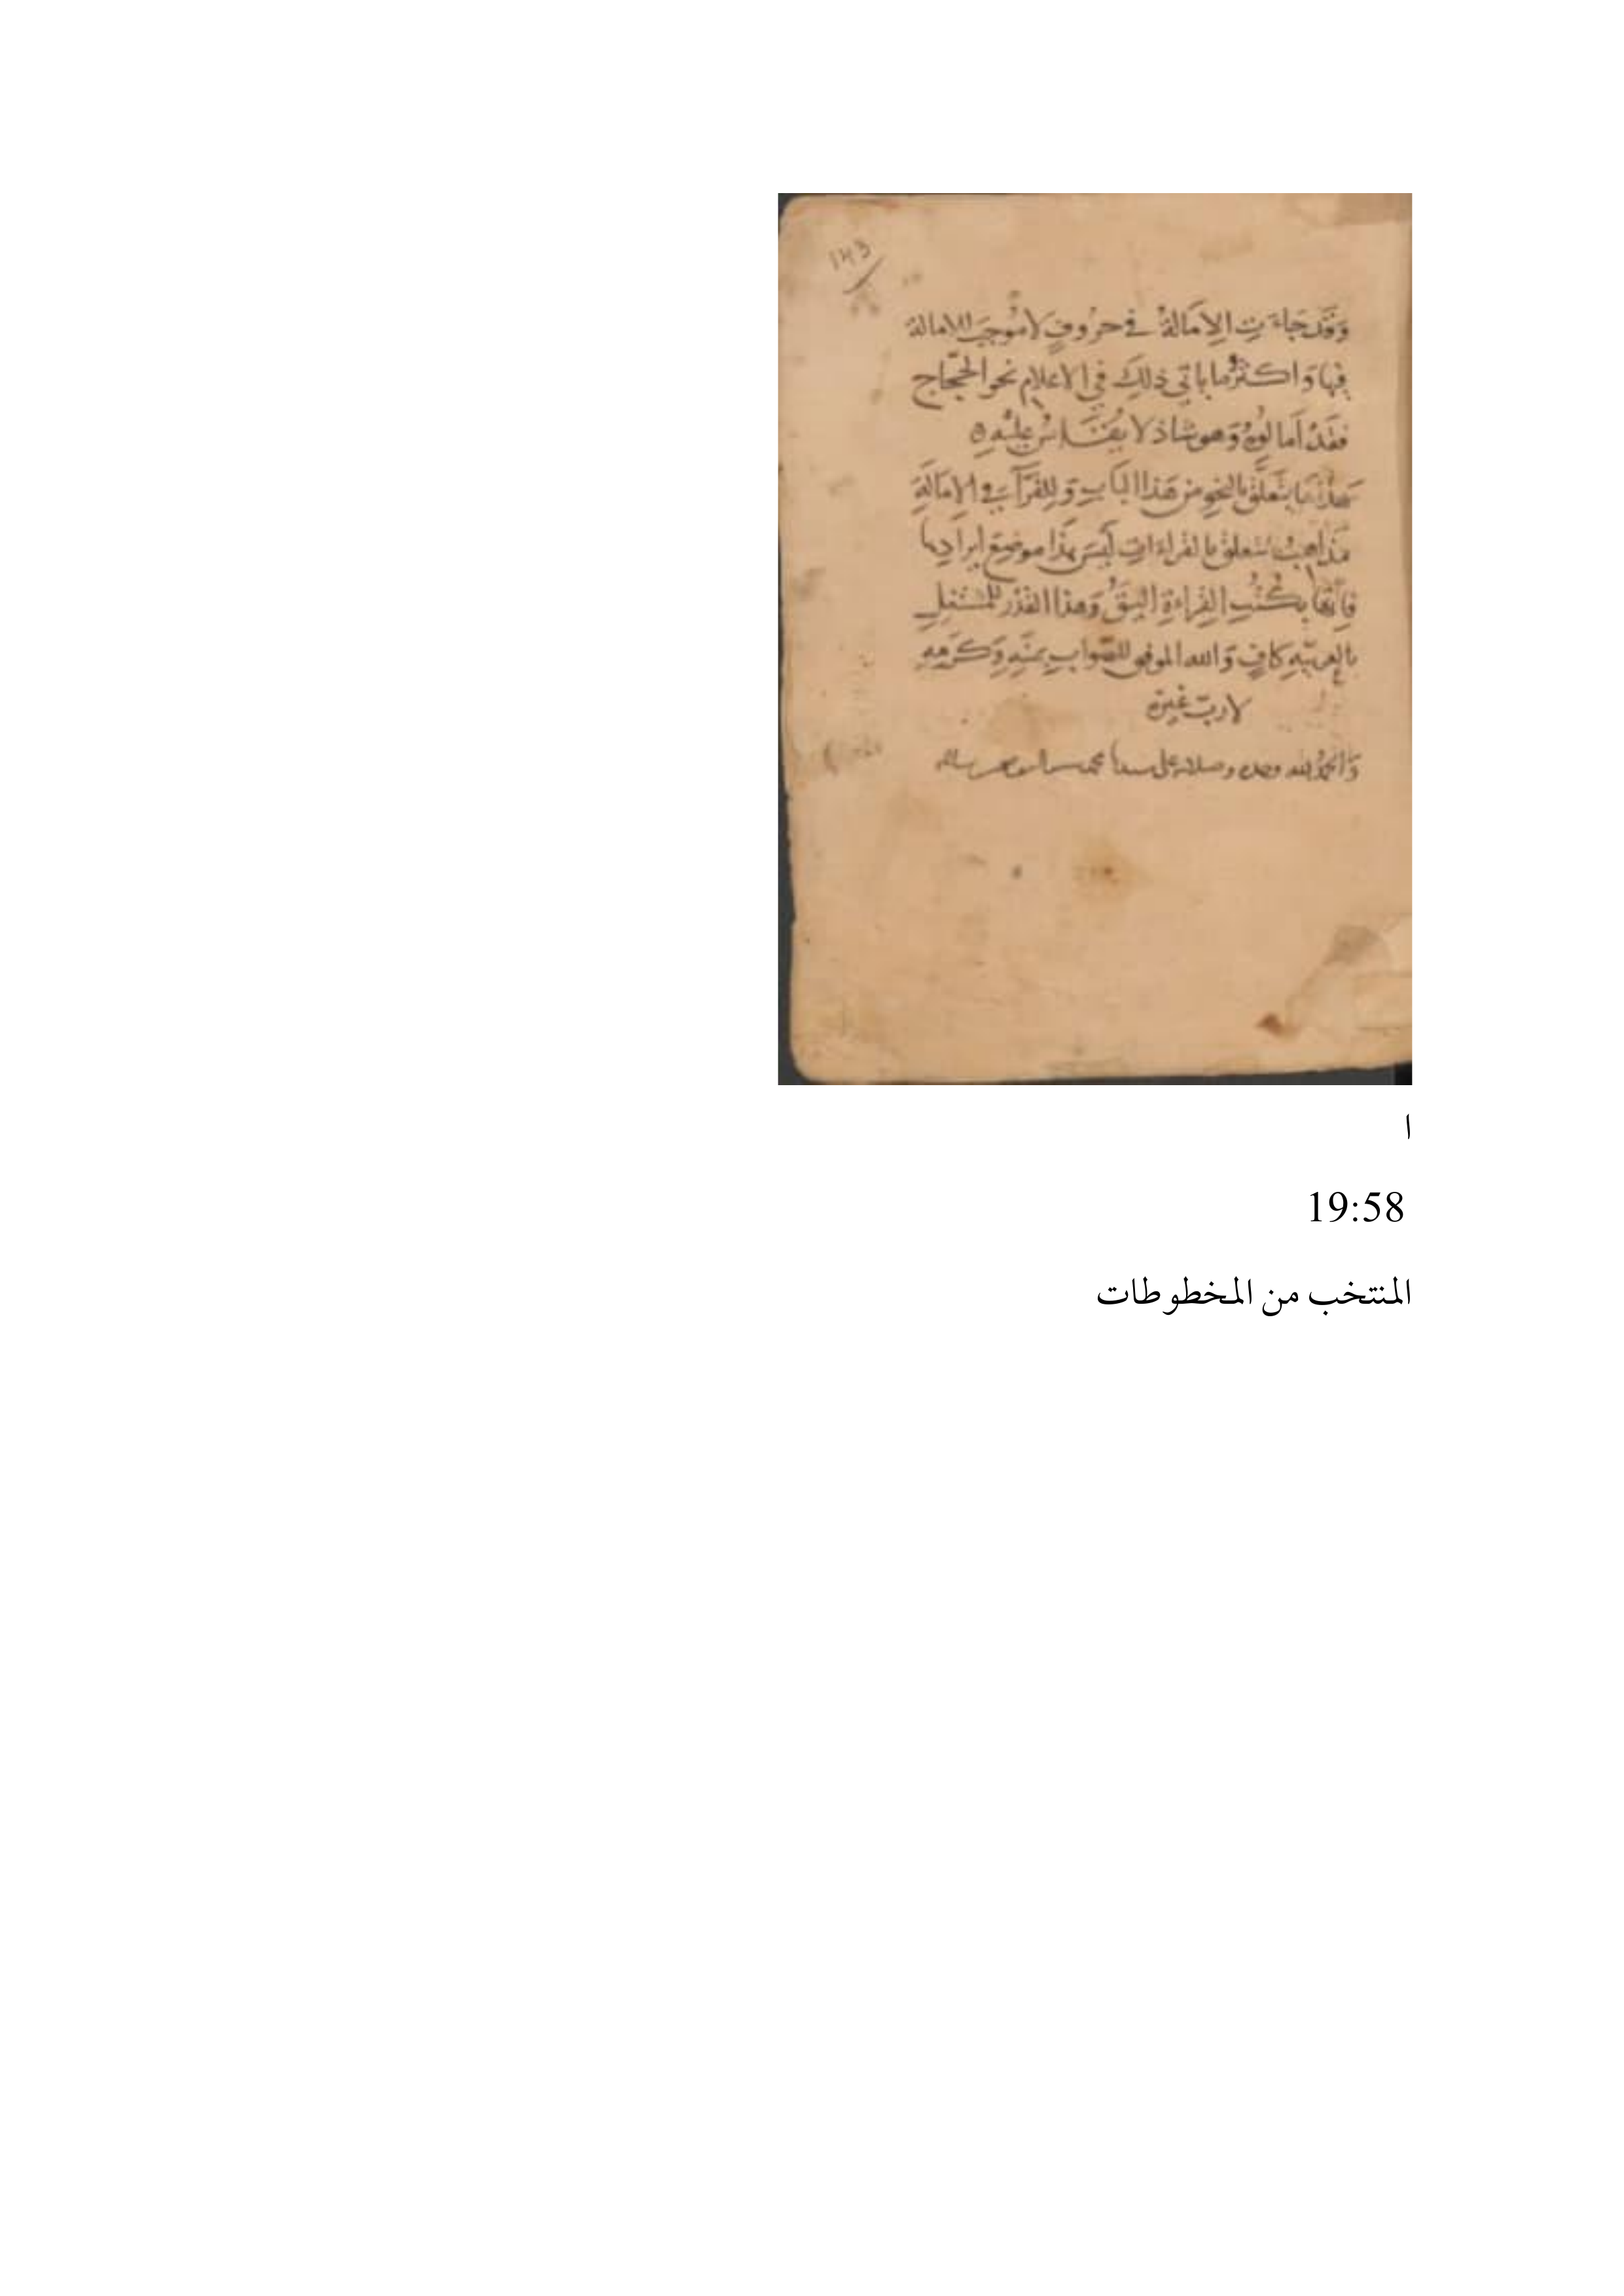 143
وَقَد جَاءَتِ الإِمَالةُ في حرُوفٍ لا مُوجِبَ للامالة
فيها وَاكثرُ ما ياتي ذلِكَ في الاعلام نحو الحجّاج
فقَدْ اَمالوهُ وَهو شاذ لا يُقتَاسُ عليْهِ ه
هذا مَا يتَعلَّق بالنحوِ من هَذا البَابِ وَللِقُرَّآءِ في الإمَالَةِ
مَذاهِبُ تتعلق بالقراءاتِ ليسَ هَذا موضِعَ ايرادِها
فانّها بكُتُبِ القِراءةِ اليَقُ وَهذا القَدْر للمُشتغِلِ
بالعربيّةِ كافٍ وَالله الموفق للصّوابِ بمنِّهِ وَكرَمِهِ
لا ربّ غيرَه
وَالحمْدُ لله وحده وصلاته على سيدنا محمد
ا
19:58
المنتخب من المخطوطات